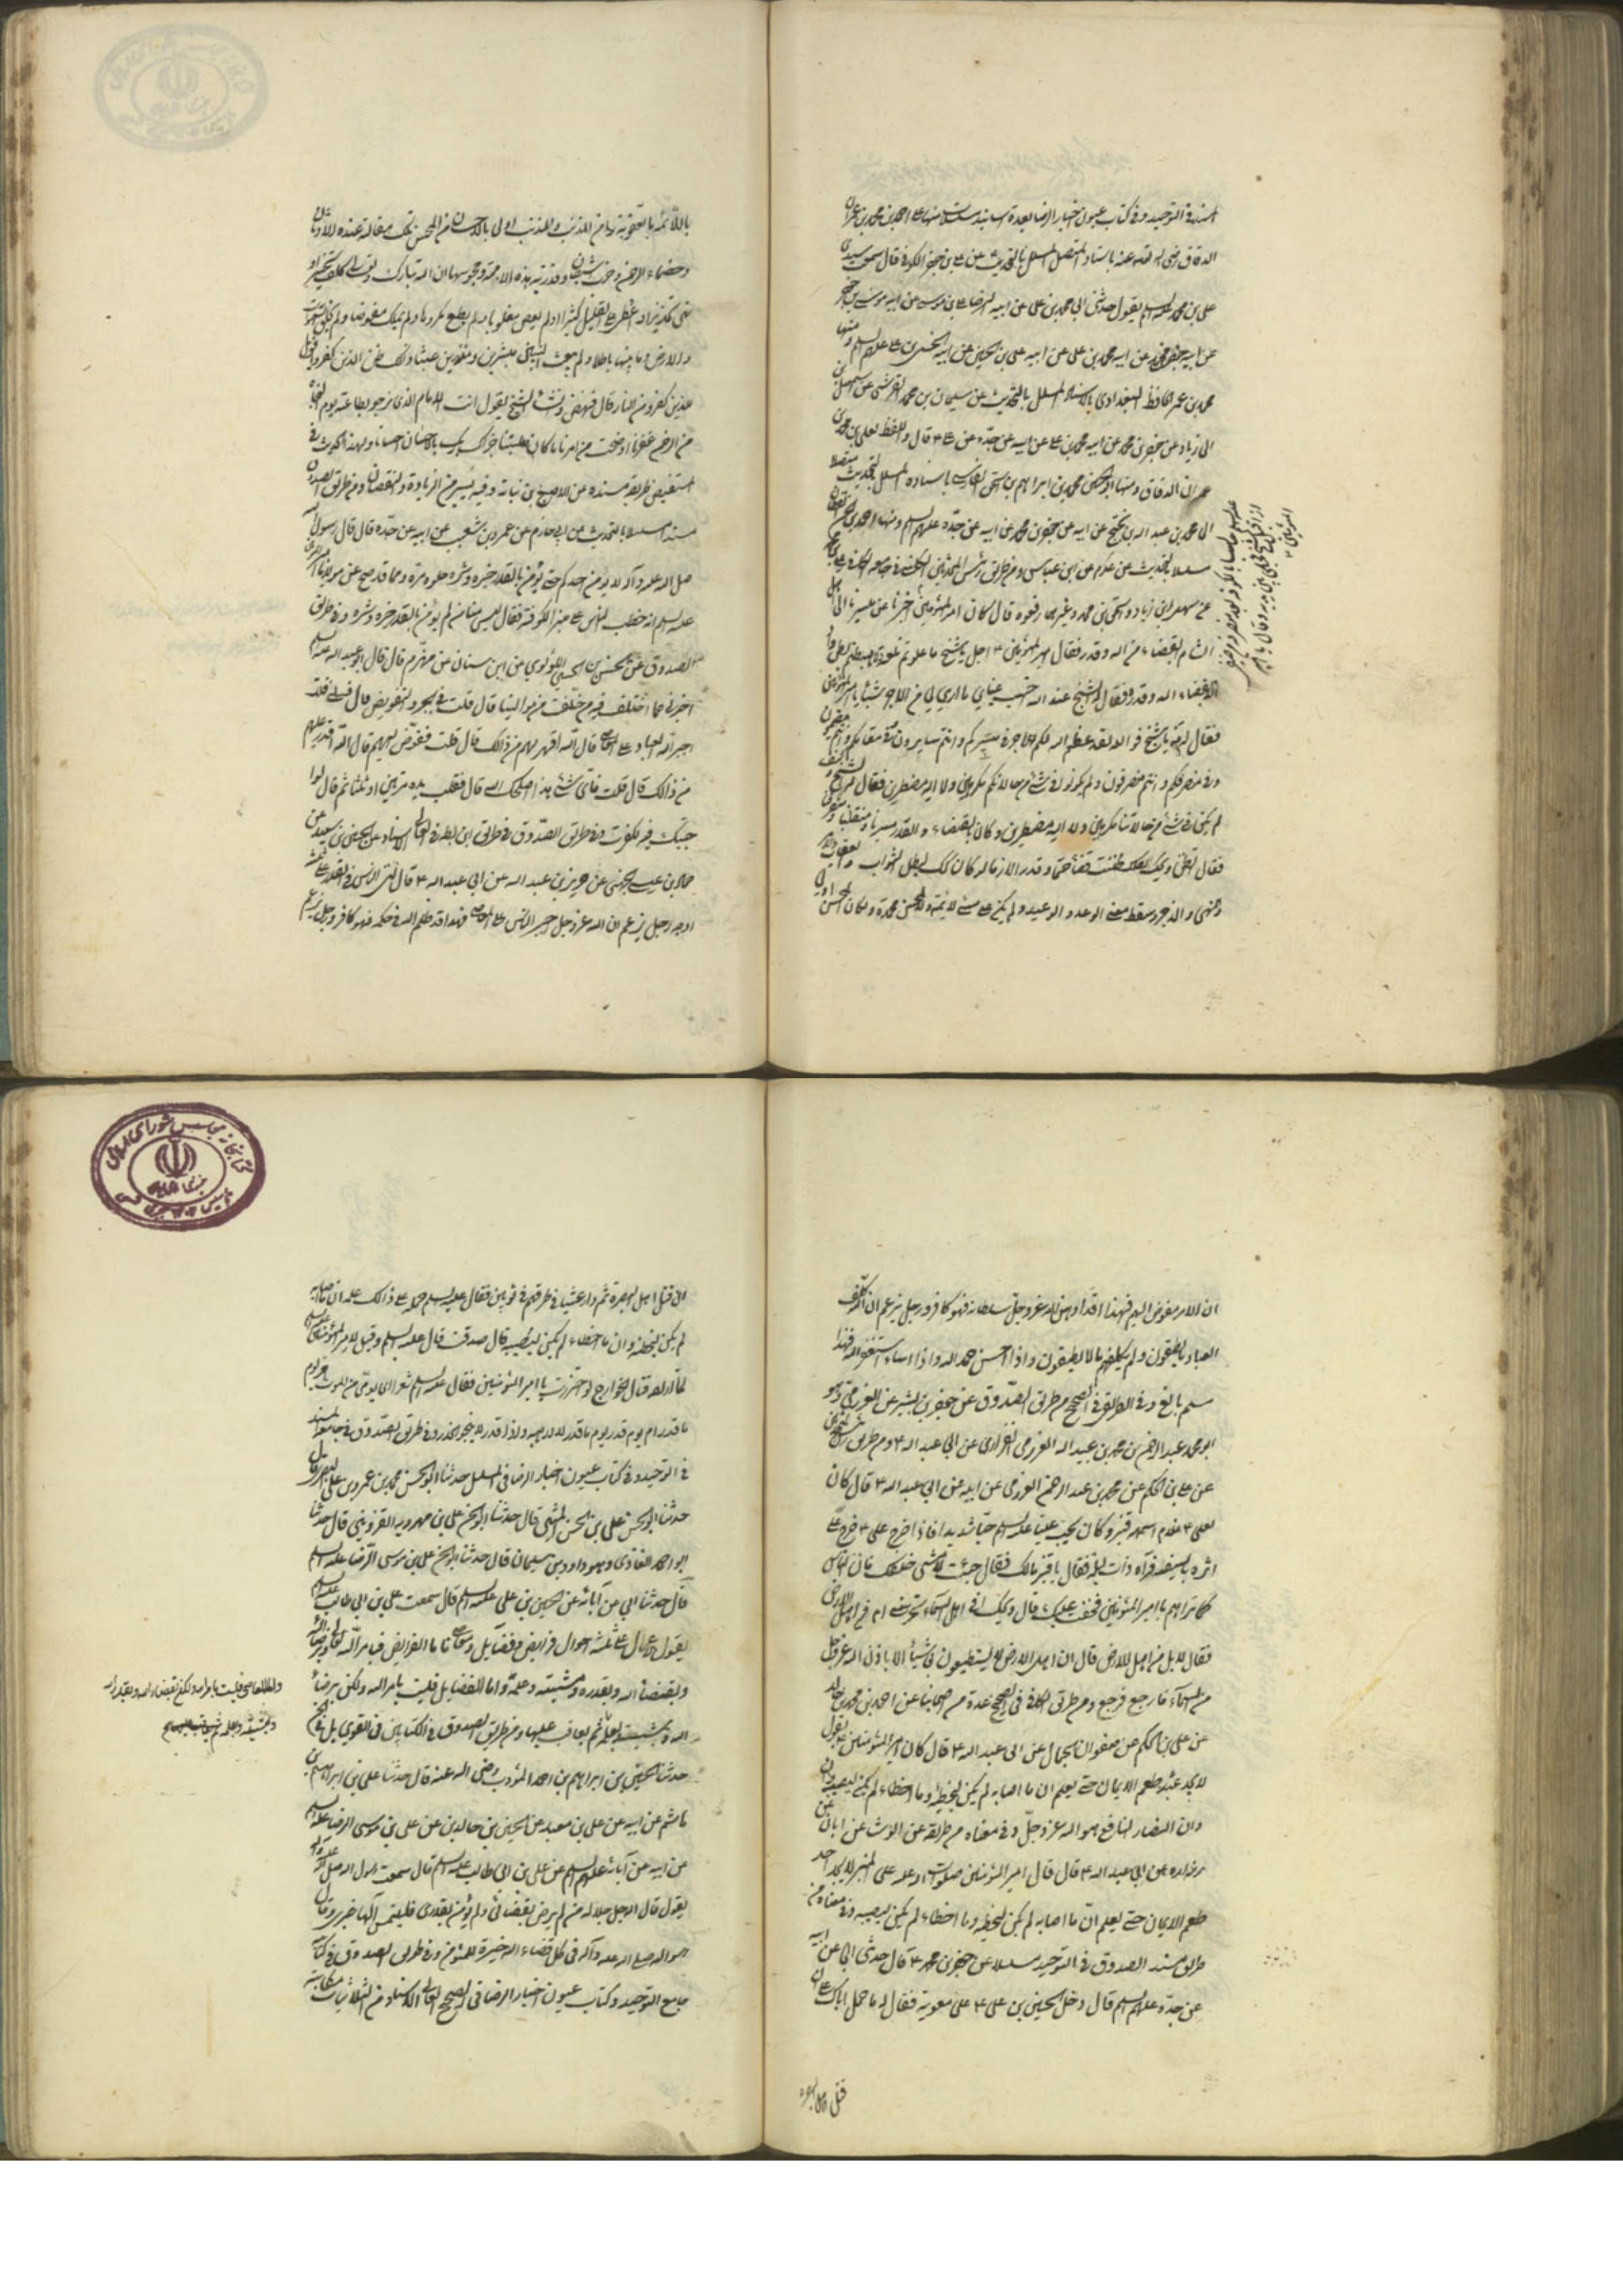 المسند فی التوحید و فی کتاب عیون اخبار الرضا بعدة اسانید مسلسلات منها عن احمد بن محمد بن عمران
الدقاق رضی الله تعالی عنه باسناده المتصل المسلسل بالتحدیث عن علی بن جعفر الکوفی قال سمعت سیدی
علی بن محمد علیه السلم یقول حدثنی ابی محمد بن علی عن ابیه الرضا علی بن موسی عن ابیه موسی بن جعفر
عن ابیه جعفر بن محمد عن ابیه محمد بن علی عن ابیه علی بن الحسین عن ابیه الحسین بن علی علیهم السلم و منها
محمد بن عمر الحافظ البغدادی بالاسناد المسلسل بالتحدیث عن سلیمان بن محمد القرشی عن اسمعیل بن
ابی زیاد عن جعفر بن محمد عن ابیه محمد بن علی عن ابیه عن جده عن علی ع قال و اللفظ لعلی بن محمد بن
عمران الدقاق و منها ابو الحسین محمد بن ابراهیم بن اسحق الفارسی باسناده المسلسل بالتحدیث متصلا
الی محمد بن عبد الله بن نجیح عن ابیه عن جعفر بن محمد عن ابیه عن جده علیهم السلم و منها احمد بن الحسن القطان
مسلسلا بالتحدیث عن عکرمة عن ابن عباس و من طریق رئیس المحدثین الکلینی فی جامعه الکافی علی بن محمد
عن سهل بن زیاد و اسحق بن محمد و غیرهما رفعوه قال کان امیر المؤمنین
الشام القضاء من الله و قدر فقال امیر المؤمنین ع اجل یا شیخ ما علوتم تلعة و لا هبطتم بطن واد
الا بقضاء الله و قدر فقال له الشیخ عند الله احتسب عنائی
فقال له مه یا شیخ فوالله لقد عظم الله لکم الاجر فی مسیرکم و انتم سایرون و فی مقامکم و انتم مقیمون
و فی منصرفکم و انتم منصرفون و لم تکونوا فی شئ من حالاتکم مکرهین و لا الیه مضطرین فقال له الشیخ و کیف
لم نکن فی شئ من حالاتنا مکرهین و لا الیه مضطرین و کان بالقضاء و القدر مسیرنا و منقلبنا و منصرفنا
فقال له و تظن انه کان قضاء حتما و قدرا لازما لو کان کذلک لبطل الثواب و العقاب
و النهی و الزجر و سقط معنی الوعد و الوعید و لم یکن علی مسئ لائمة و لا لمحسن محمدة و لکان المحسن اولی
باللائمة
و خصماء الرحمن و حزب الشیطان و قدریة هذه الامة و مجوسها ان الله تبارک و تعالی کلف تخییرا و
نهی تحذیرا و اعطی علی القلیل کثیرا و لم یعص مغلوبا و لم یطع مکرها و لم یملک مفوضا و لم یخلق السموات
و الارض و ما بینهما باطلا و لم یبعث النبیین مبشرین و منذرین عبثا ذلک ظن الذین کفروا فویل
للذین کفروا من النار قال فنهض و انشأ الشیخ یقول انت الامام الذی نرجو بطاعته یوم النجاة
من الرحمن غفرانا اوضحت من امرنا ما کان ملتبسا جزاک ربک بالاحسان احسانا و لهذا الحدیث فی
المستفیض طریقه مسنده عن الاصبغ بن نباتة و فیه یسیر من الزیادة و النقصان و من طریق الصدوق
مسندا مسلسلا بالتحدیث عن ابی حازم عن عمرو بن شعیب عن ابیه عن جده قال قال رسول الله
صلی الله علیه و آله لا یؤمن احدکم حتی یؤمن بالقدر خیره و شره و حلوه و مره و مما قد صح عن مولانا امیر المؤمنین
علیه السلم انه خطب الناس علی منبر الکوفة فقال لیس منا من لم یؤمن بالقدر خیره و شره و فی طریق
الصدوق عن الحسن بن الحسین اللؤلوی عن ابن سنان عن مهزم قال قال ابو عبد الله علیه السلم
اخبرنی عما اختلف فیه من خلفت من موالینا قال قلت فی الجبر و التفویض قال فسلنی قلت
اجبر الله العباد علی المعاصی قال الله اقهر لهم من ذلک قال قلت ففوض الیهم قال الله اقدر علیهم
من ذلک قال قلت فای شئ هذا اصلحک الله قال فقلب یده مرتین او ثلثا ثم قال لو
اجبتک فیه لکفرت و فی طریق الصدوق
حماد بن عیسی الجهنی عن حریز بن عبد الله عن ابی عبد الله ع قال ان الناس فی القدر علی ثلثة
اوجه رجل یزعم ان الله عز و جل اجبر الناس علی المعاصی فهذا قد ظلم الله فی حکمه فهو کافر و رجل یزعم
ان الامر مفوض الیهم فهذا قد اوهن الله عز و جل سلطانه فهو کافر و رجل یزعم ان الله کلف
العباد ما یطیقون و لم یکلفهم ما لا یطیقون و اذا احسن حمد الله و اذا اساء استغفر الله فهذا
مسلم بالغ و فی الطریق الصحیح من طریق الصدوق عن جعفر بن بشیر عن العرزمی و هو
ابو محمد عبد الرحمن بن محمد بن عبید الله العرزمی الفزاری عن ابی عبد الله ع و من طریق
عن علی بن الحکم عن محمد بن عبد الرحمن العرزمی عن ابیه عن ابی عبد الله ع قال کان
لعلی ع غلام اسمه قنبر و کان یحب علیا علیه السلم حبا شدیدا فاذا خرج علی ع خرج علی
اثره بالسیف فرآه ذات لیلة فقال یا قنبر مالک فقال جئت لامشی خلفک فان الناس
کما تراهم یا امیر المؤمنین فخفت علیک قال ویحک ا من اهل السماء تحرسنی ام من اهل الارض
فقال لا بل من اهل الارض قال ان اهل الارض لا یستطیعون لی شیئا الا باذن الله عز و جل
من السماء فارجع فرجع و من طریق الکافی فی الصحیح عدة من اصحابنا عن احمد بن محمد بن خالد
عن علی بن الحکم عن صفوان الجمال عن ابی عبد الله ع قال کان امیر المؤمنین یقول
لا یجد عبد طعم الایمان حتی یعلم ان ما اصابه لم یکن لیخطئه و ما اخطاه لم یکن لیصیبه
و ان الضار النافع هو الله عز و جل و فی معناه من طریقه عن الوشا عن ابان عن
زرارة عن ابی عبد الله ع قال قال امیر المؤمنین صلوات الله علیه علی المنبر لا یجد احد
طعم الایمان حتی یعلم ان ما اصابه لم یکن لیخطئه و ما اخطاه لم یکن لیصیبه و فی معناه من
طریق مسند الصدوق فی التوحید مسلسلا عن جعفر بن محمد ع قال حدثنی ابی عن ابیه
عن جده علیهم السلم قال دخل الحسین بن علی ع علی معویة فقال له ما حمل اباک علی ان
قتل اهل البصره
ان قتل اهل البصرة ثم دار عشیا فی طرقهم فی ثوبین فقال علیه السلم حمله علی ذلک علمه ان ما اصابه
لم یکن لیخطئه و ان ما اخطاه لم یکن لیصیبه قال صدقت قال علیه السلم و قیل لامیر المؤمنین علیه السلم
لما اراد قتال الخوارج لو احترزت یا امیر المؤمنین فقال علیه السلم شعر ای یومی من الموت افر یوم
ما قدر ام یوم قدر یوم ما قدر لا ارهبه و اذا قدر لا ینجی الحذر و فی طریق الصدوق فی جامعه المسند
فی التوحید و فی کتاب عیون اخبار الرضا فی المسلسل حدثنا ابو الحسن محمد بن عمرو بن علی البصری قال
حدثنا ابو الحسن علی بن الحسن المثنی قال حدثنا ابو الحسن علی بن مهرویه القزوینی قال حدثنا
ابو احمد الغازی و هو داود بن سلیمان قال حدثنا ابو الحسن علی بن موسی الرضا علیه السلم
قال حدثنا ابی عن آبائه عن الحسین بن علی علیه السلم قال سمعت علی بن ابی طالب علیه السلم
یقول الاعمال علی ثلثة احوال فرایض و فضایل و معاصی فاما الفرایض فبامر الله تعالی و برضا الله
و بقضاء الله و بقدره و مشیته و علمه و اما الفضایل فلیست بامر الله و لکن برضاء
الله و بمشیته و بعلمه ثم یعاقب علیها و من طریق الصدوق فی الکتابین فی القوی بل فی الصحیح
حدثنا الحسین بن ابراهیم بن احمد المؤدب رضی الله عنه قال حدثنا علی بن ابراهیم بن
هاشم عن ابیه عن علی بن معبد عن الحسین بن خالد عن علی بن موسی الرضا علیه السلم
عن ابیه عن آبائه علیهم السلم عن علی بن ابی طالب علیه السلم قال سمعت رسول الله صلی الله علیه و آله
یقول قال الله جل جلاله من لم یرض بقضائی و لم یؤمن بقدری فلیلتمس الها غیری و قال
رسول الله صلی الله علیه و آله فی کل قضاء الله خیرة للمؤمن و فی طریق الصدوق فی کتاب
جامع التوحید و کتاب عیون اخبار الرضا فی الصحیح العالی الاسناد من الثلاثیات
و اما المعاصی فلیست بامر الله و لکن بقضاء الله و بقدر الله
و بمشیته و بعلمه ثم یعاقب علیها
کتابخانه مجلس شورای اسلامی